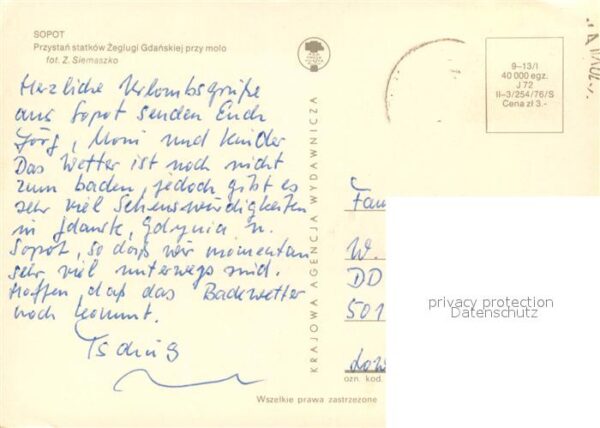 SOPOT
Przystań statków Żeglugi Gdańskiej przy molo
fot. Z. Siemaszko
Herzliche Urlaubsgrüße
aus Sopot senden Euch
Jörg, Moni und Kinder
Das Wetter ist noch nicht
zum baden, jedoch gibt es
sehr viel Sehenswürdigkeiten
in Gdansk, Gdynia u.
Sopot, so daß wir momentan
sehr viel unterwegs sind.
Hoffen, daß das Badewetter
noch kommt.
Tschüß
KRAJOWA AGENCJA WYDAWNICZA
9-13/I
40 000 egz.
J 72
II-3/254/76/S
Cena zł 3.-
Fam
W.
DD
501
ozn. kod
privacy protection
Datenschutz
Wszelkie prawa zastrzeżone